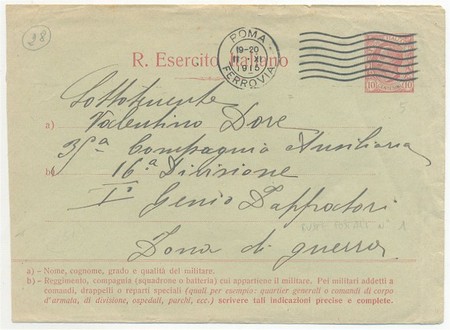 28
ROMA
19-20
11 XI
1915
FERROVIA
R. Esercito Italiano
10 10
Sottotenente
a) Valentino Dore
35ª Compagnia Ausiliaria
b) 16ª Divisione
I° Genio Zappatori
Zona di guerra
a) - Nome, cognome, grado e qualità del militare.
b) - Reggimento, compagnia (squadrone o batteria) cui appartiene il militare. Pei militari addetti a
comandi, drappelli o reparti speciali (quali per esempio: quartier generali o comandi di corpo
d'armata, di divisione, ospedali, parchi, ecc.) scrivere tali indicazioni precise e complete.